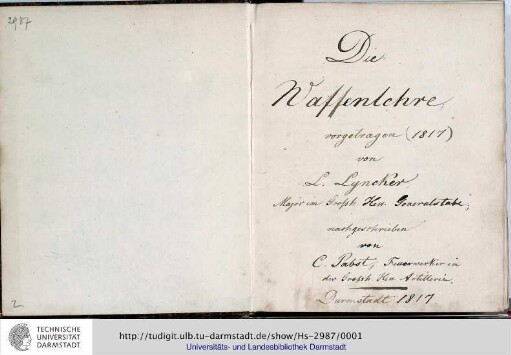 2987
Die
Waffenlehre,
vorgetragen (1817)
von
L. Lyncker
Major im Großh. Hess. Generalstabe,
nachgeschrieben
von
C. Pabst, Feuerwerker in
der Großh. Hess Artillerie.
Darmstadt 1817.
2
TECHNISCHE
UNIVERSITÄT
DARMSTADT
http://tudigit.ulb.tu-darmstadt.de/show/Hs-2987/0001
Universitäts- und Landesbibliothek Darmstadt